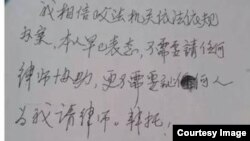 我相信政法机关依法依规
办案，本人早已表态，不需要请任何
律师协助，更不需要别何人
为我请律师。拜托。
Courtesy Image